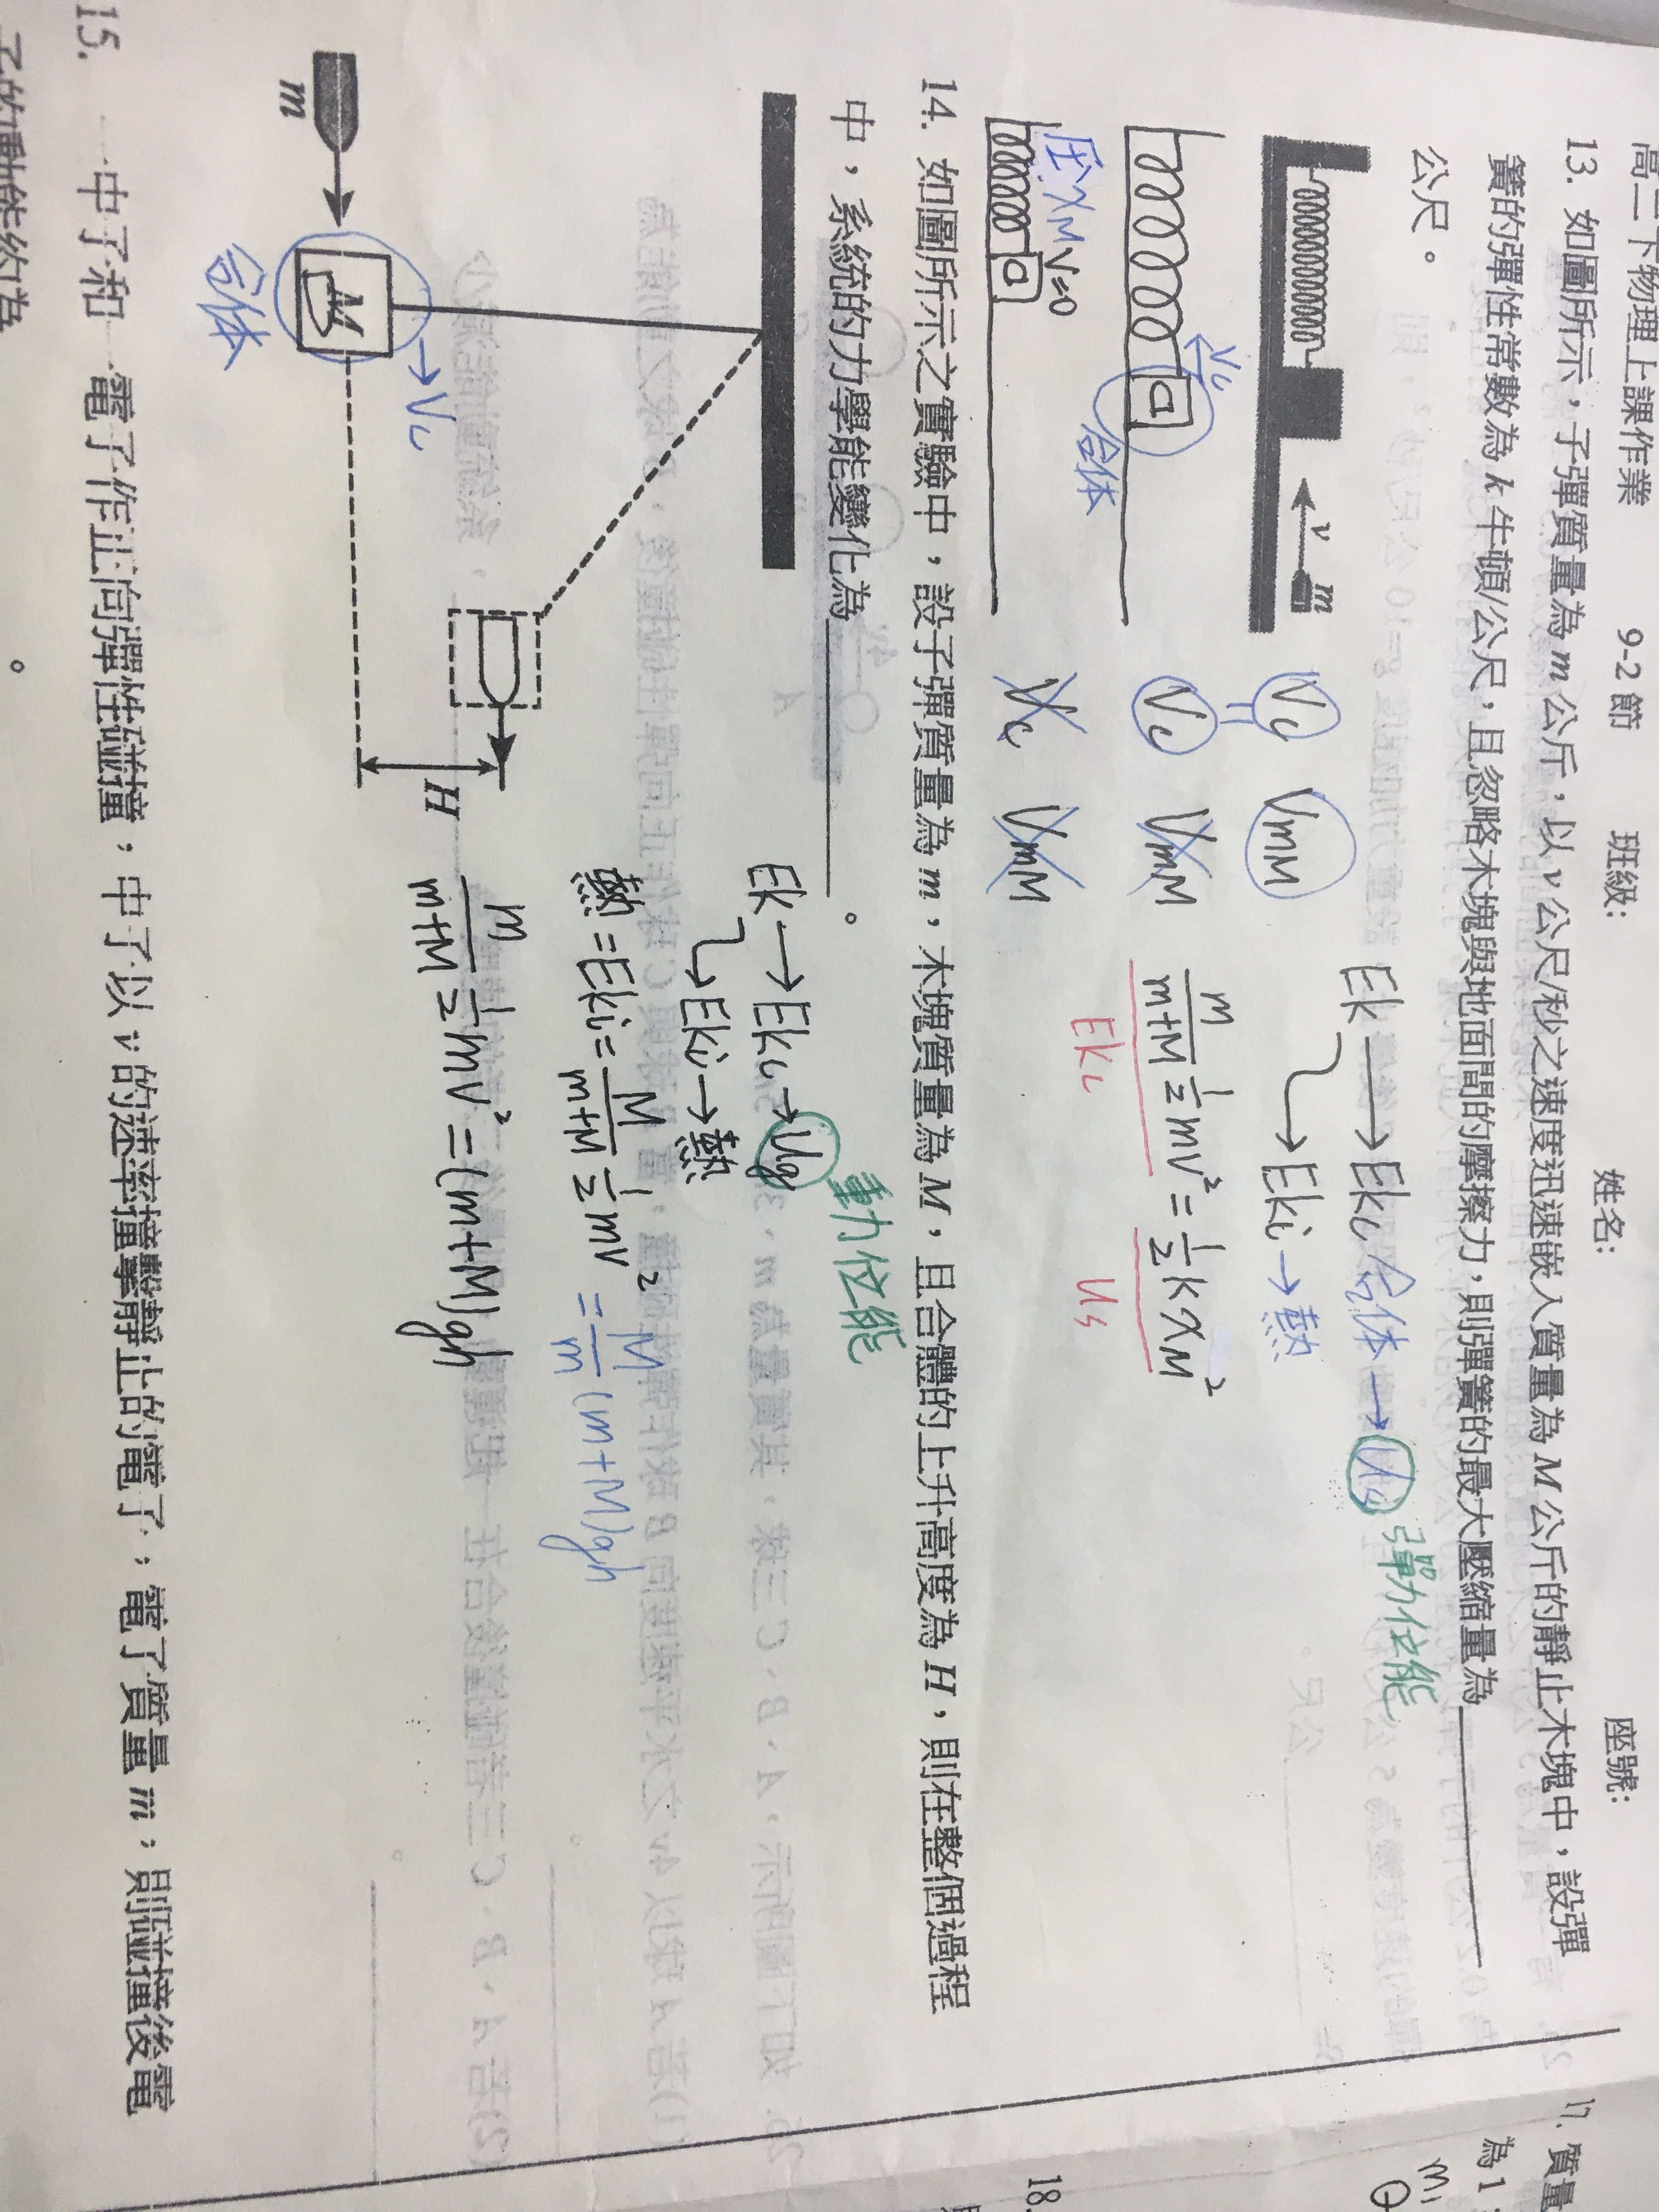 高二下物理上課作業 9-2 節 班級: 姓名: 座號:
13. 如圖所示，子彈質量為 m 公斤，以 v 公尺/秒之速度迅速嵌入質量為 M 公斤的靜止木塊中，設彈
簧的彈性常數為 k 牛頓/公尺，且忽略木塊與地面間的摩擦力，則彈簧的最大壓縮量為
公尺。
v m
Vc VmM
Ek → Ekc 合体 → Us 彈力位能
→ Eki → 熱
Vc 合体
Vc VmM
m/(m+M) 1/2 mv² = 1/2 k xM²
Ekc Us
压 xM V=0
Vc VmM
14. 如圖所示之實驗中，設子彈質量為 m，木塊質量為 M，且合體的上升高度為 H，則在整個過程
中，系統的力學能變化為 。
Ek → Ekc → Ug 重力位能
→ Eki → 熱
熱 = Eki = M/(m+M) 1/2 mv² = M/m (m+M)gh
m/(m+M) 1/2 mv² = (m+M)gh
H
m M → Vc
合体
15. 一中子和一電子作正向彈性碰撞，中子以 v 的速率撞擊靜止的電子，電子質量 m，則碰撞後電
子的動能約為 。
17. 質量
為 1
m₁
18.